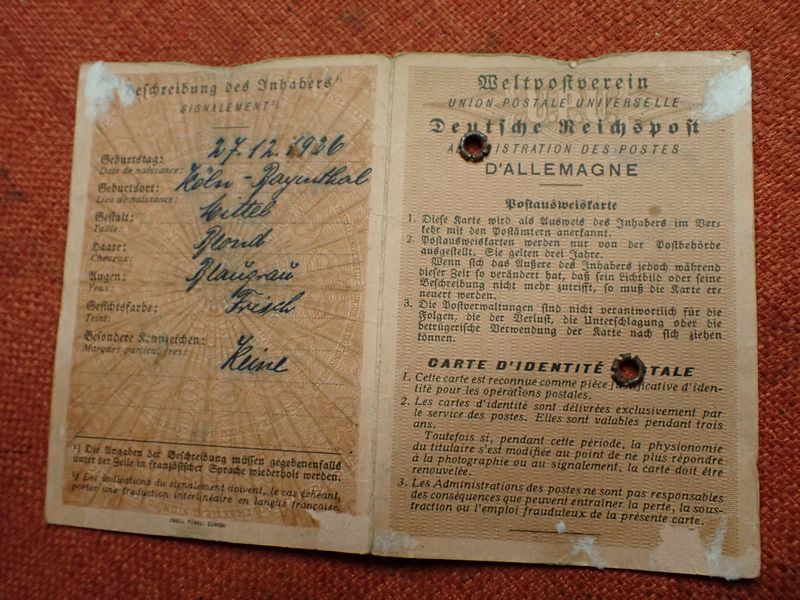 Beschreibung des Inhabers¹)
SIGNALEMENT¹)
Geburtstag: 27.12.1926
Date de naissance:
Geburtsort: Köln - Bayenthal
Lieu de naissance:
Gestalt: Mittel
Taille:
Haare: Blond
Cheveux:
Augen: Blaugrau
Yeux:
Gesichtsfarbe: Frisch
Teint:
Besondere Kennzeichen: Keine
Marques particulières:
¹) Die Angaben der Beschreibung müssen gegebenenfalls
unter der Zeile in französischer Sprache wiederholt werden.
¹) Les indications du signalement doivent, le cas échéant,
porter une traduction interlinéaire en langue française.
ORELL FÜSSLI ZÜRICH
Weltpostverein
UNION POSTALE UNIVERSELLE
Deutsche Reichspost
ADMINISTRATION DES POSTES
D'ALLEMAGNE
Postausweiskarte
1. Diese Karte wird als Ausweis des Inhabers im Ver-
kehr mit den Postämtern anerkannt.
2. Postausweiskarten werden nur von der Postbehörde
ausgestellt. Sie gelten drei Jahre.
Wenn sich das Äußere des Inhabers jedoch während
dieser Zeit so verändert hat, daß sein Lichtbild oder seine
Beschreibung nicht mehr zutrifft, so muß die Karte er-
neuert werden.
3. Die Postverwaltungen sind nicht verantwortlich für die
Folgen, die der Verlust, die Unterschlagung oder die
betrügerische Verwendung der Karte nach sich ziehen
können.
CARTE D'IDENTITÉ POSTALE
1. Cette carte est reconnue comme pièce justificative d'iden-
tité pour les opérations postales.
2. Les cartes d'identité sont délivrées exclusivement par
le service des postes. Elles sont valables pendant trois
ans.
Toutefois si, pendant cette période, la physionomie
du titulaire s'est modifiée au point de ne plus répondre
à la photographie ou au signalement, la carte doit être
renouvelée.
3. Les Administrations des postes ne sont pas responsables
des conséquences que peuvent entraîner la perte, la sous-
traction ou l'emploi frauduleux de la présente carte.